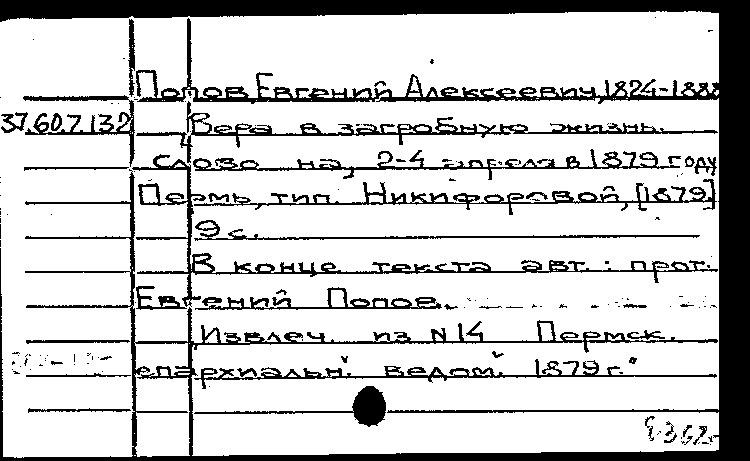 Попов, Евгений Алексеевич, 1824-1888
37.60.7.132 Вера в загробную жизнь.
Слово на, 2-4 апреля в 1879 году
Пермь, тип. Никифоровой, [1879.]
9 с.
В конце текста авт.: прот.
Евгений Попов.
Извлеч. из N14 Пермск.
епархиальн. ведом. 1879 г."